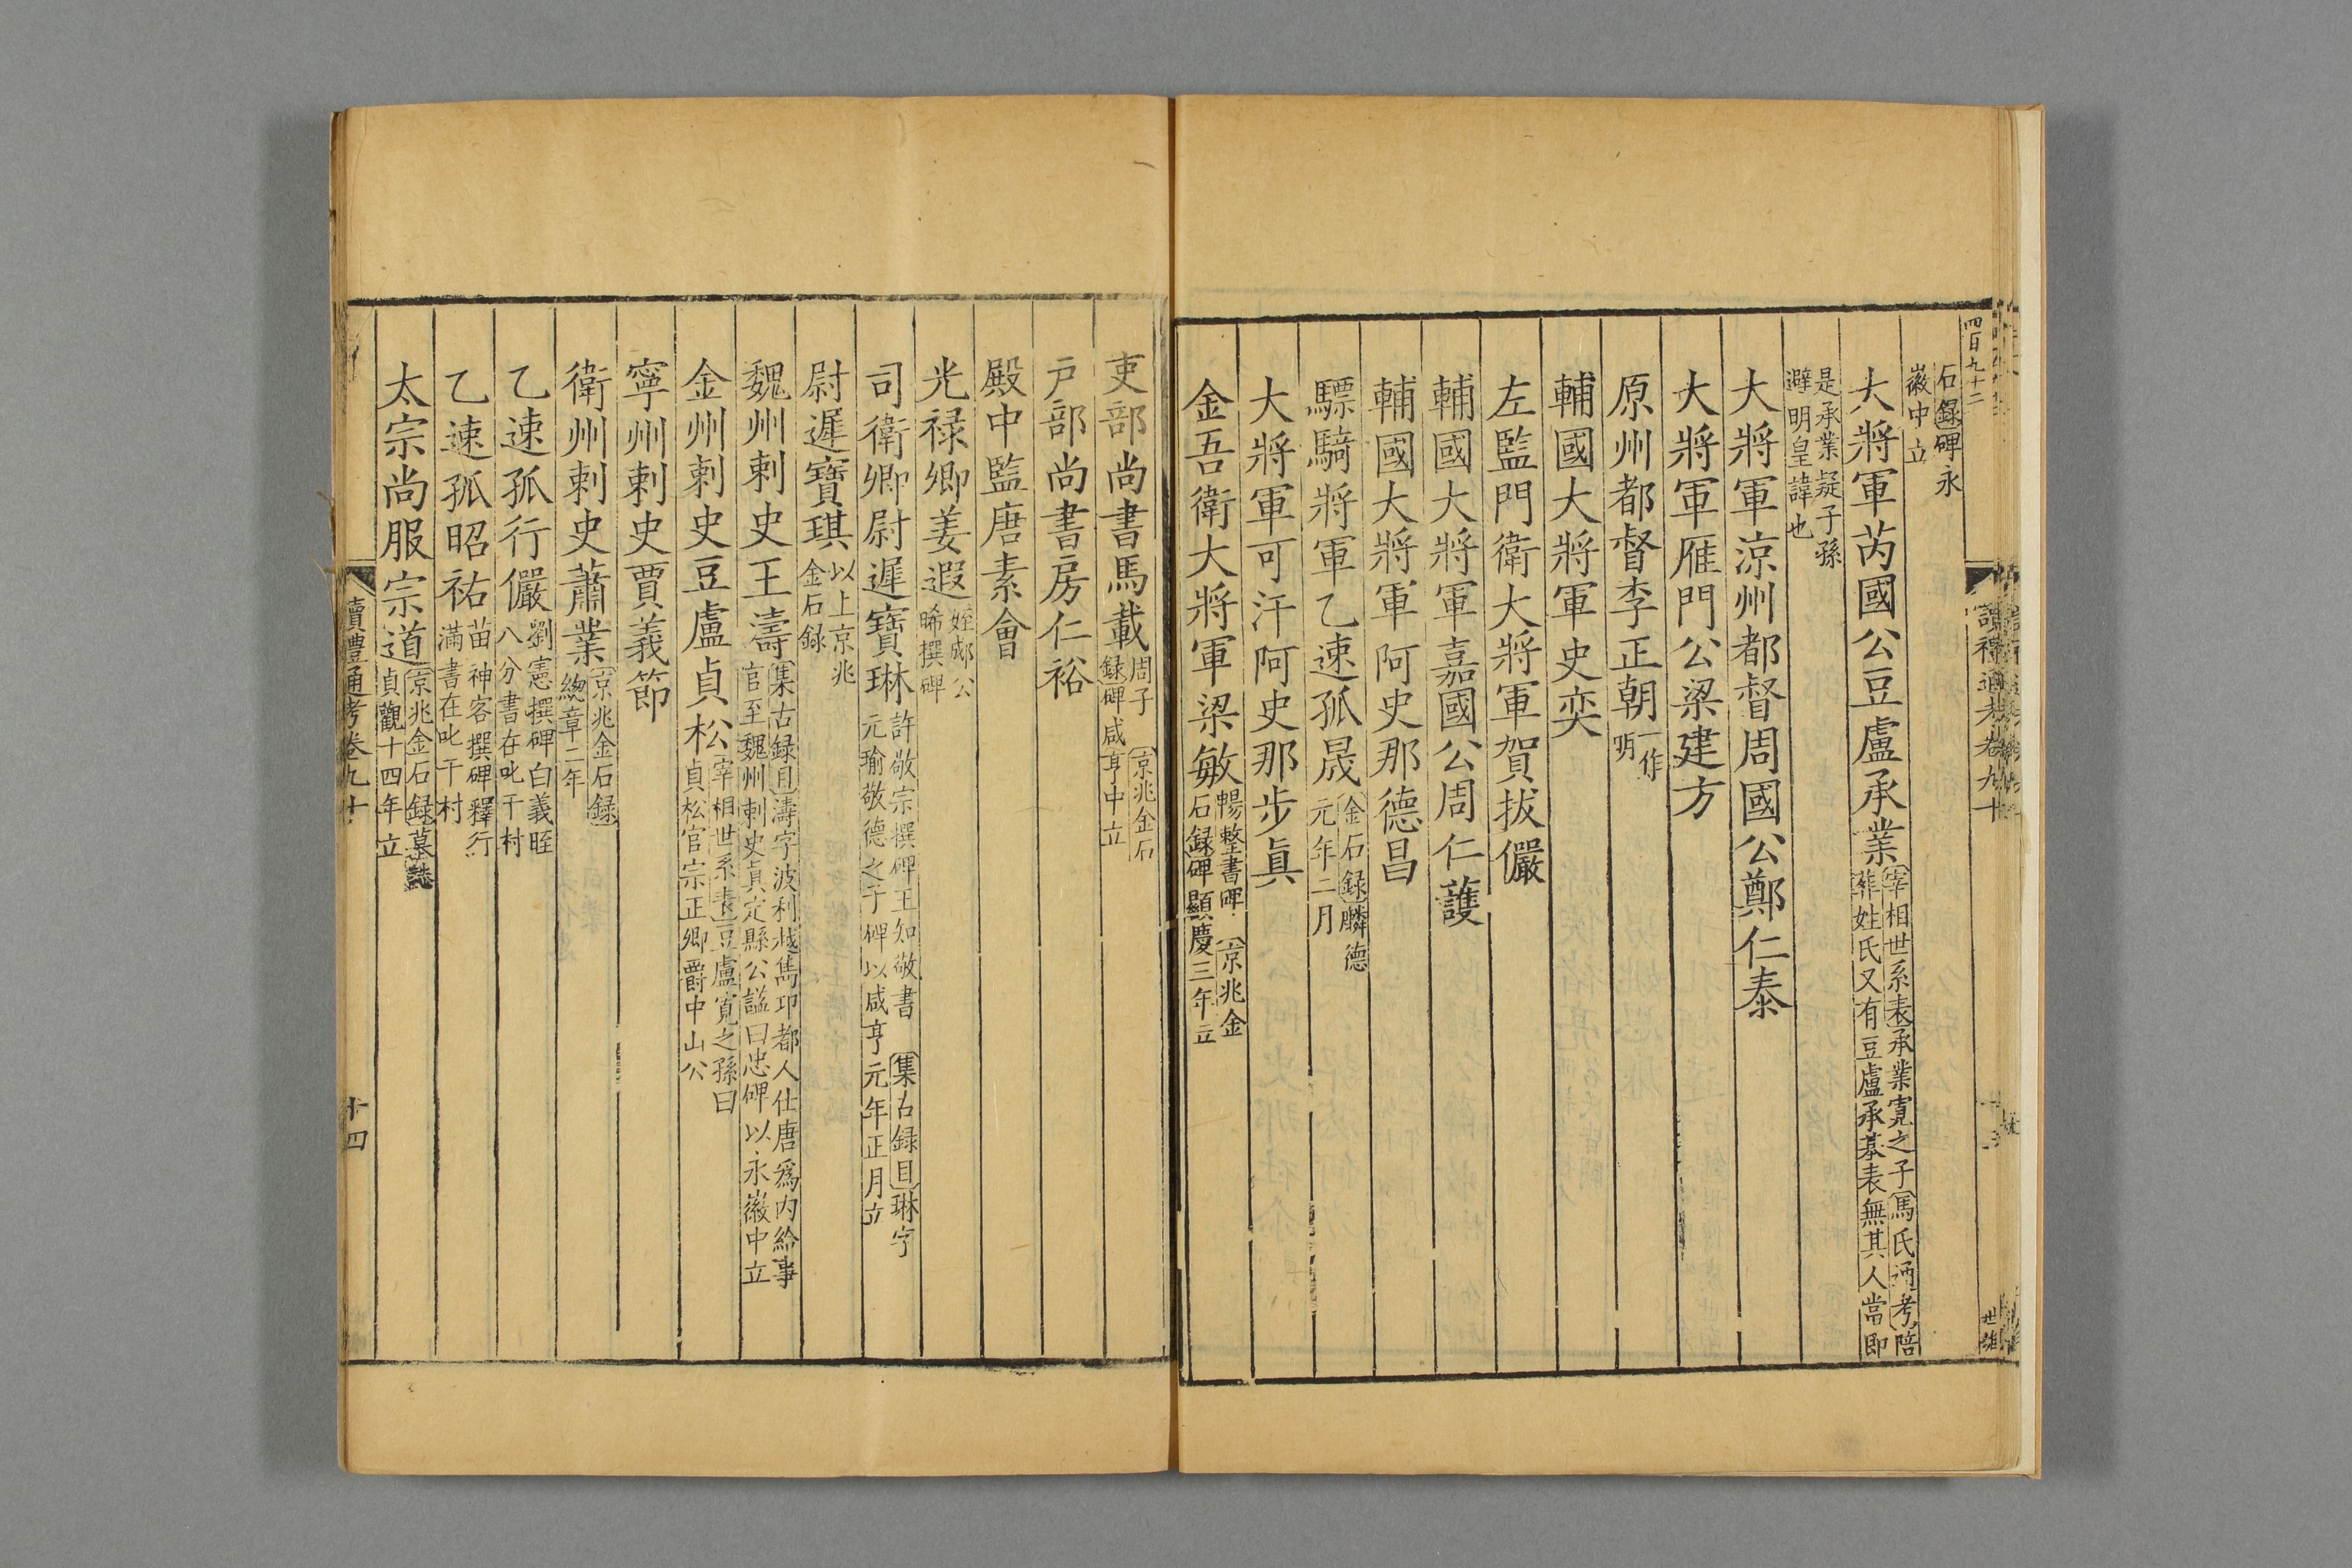 四百九十二
讀禮通考卷九十
世雄
石録碑永
徽中立
大將軍芮國公豆盧承業宰相世系表承業寛之子馬氏通考陪
葬姓氏又有豆盧承基表無其人當即
是承業疑子孫
避明皇諱也
大將軍涼州都督周國公鄭仁泰
大將軍雁門公梁建方
原州都督李正朝一作
明
輔國大將軍史奕
左監門衛大將軍賀拔儼
輔國大將軍嘉國公周仁護
輔國大將軍阿史那德昌
驃騎將軍乙速孤晟金石録麟德
元年二月
大將軍可汗阿史那步眞
金吾衛大將軍梁敏暢整書碑 京兆金
石録碑顯慶三年立
吏部尚書馬載周子 京兆金石
録碑咸亨中立
戸部尚書房仁裕
殿中監唐素會
光禄卿姜遐姪郕公
晞撰碑
司衛卿尉遲寶琳許敬宗撰碑王知敬書 集古録目琳字
元瑜敬德之子碑以咸亨元年正月立
尉遲寶琪以上京兆
金石録
魏州刺史王濤集古録目濤字波利越雋邛都人仕唐爲内給事
官至魏州刺史真定縣公諡曰忠碑以永徽中立
金州刺史豆盧貞松宰相世系表豆盧寛之孫曰
貞松官宗正卿爵中山公
寧州刺史賈義節
衛州刺史蕭業京兆金石録
總章二年
乙速孤行儼劉憲撰碑白義晊
八分書在叱干村
乙速孤昭祐苗神客撰碑釋行
滿書在叱干村
太宗尚服宗道京兆金石録墓誌
貞觀十四年立
讀禮通考卷九十
十四